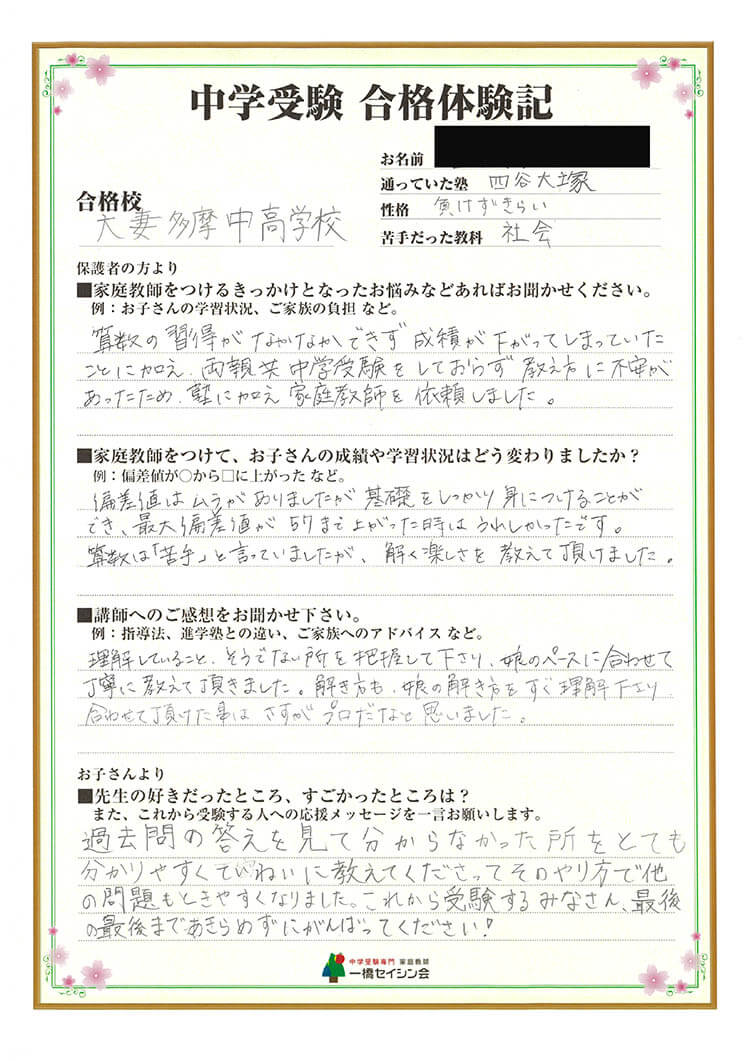 中学受験 合格体験記
お名前
通っていた塾 四谷大塚
合格校
大妻多摩中高学校
性格 負けずぎらい
苦手だった教科 社会
保護者の方より
■家庭教師をつけるきっかけとなったお悩みなどあればお聞かせください。
例：お子さんの学習状況、ご家族の負担 など。
算数の習得がなかなかできず成績が下がってしまっていた
ことに加え、両親共中学受験をしておらず教え方に不安が
あったため、塾に加え家庭教師を依頼しました。
■家庭教師をつけて、お子さんの成績や学習状況はどう変わりましたか？
例：偏差値が○から□に上がった など。
偏差値はムラがありましたが基礎をしっかり身につけることが
でき、最大偏差値が57まで上がった時はうれしかったです。
算数は「苦手」と言っていましたが、解く楽しさを教えて頂けました。
■講師へのご感想をお聞かせ下さい。
例：指導法、進学塾との違い、ご家族へのアドバイス など。
理解していること、そうでない所を把握して下さり、娘のペースに合わせて
丁寧に教えて頂きました。解き方も、娘の解き方をすぐ理解下さり
合わせて頂けた事は さすがプロだなと思いました。
お子さんより
■先生の好きだったところ、すごかったところは？
また、これから受験する人への応援メッセージを一言お願いします。
過去問の答えを見て分からなかった所をとても
分かりやすくていねいに教えてくださってそのやり方で他
の問題もときやすくなりました。これから受験するみなさん、最後
の最後まであきらめずにがんばってください！
中学受験専門 家庭教師
一橋セイシン会